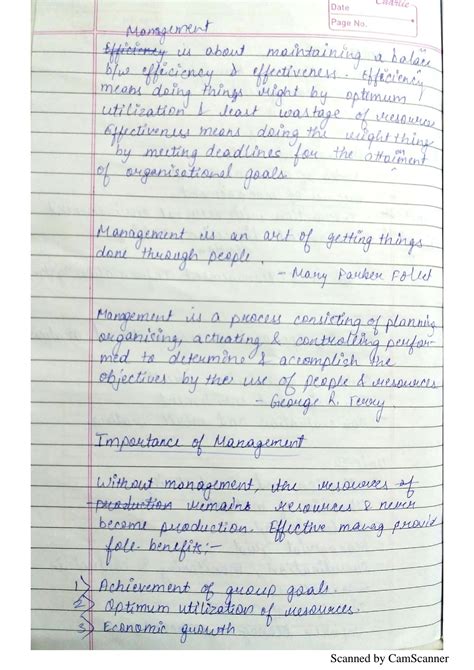 Classic
Date
Page No.
Management
Efficiency is about maintaining a balace
b/w efficiency & effectiveness. Efficiency
means doing things right by optimum
utilization & least wastage of resources
Effectiveness means doing the right thing
by meeting deadlines for the attaiment
of organisational goals.
Management is an art of getting things
done through people.
- Mary Parker Follet
Management is a process consisting of planning
organising, actuating & controlling perfor-
med to determine & accomplish the
objectives by the use of people & resources
- George R. Terry.
Importance of Management
Without management, the resources of
production remains resources & never
become production. Effective manag provid
foll. benefits:-
1) Achievement of group goals.
2) Optimum utilization of resources.
3) Economic growth
Scanned by CamScanner